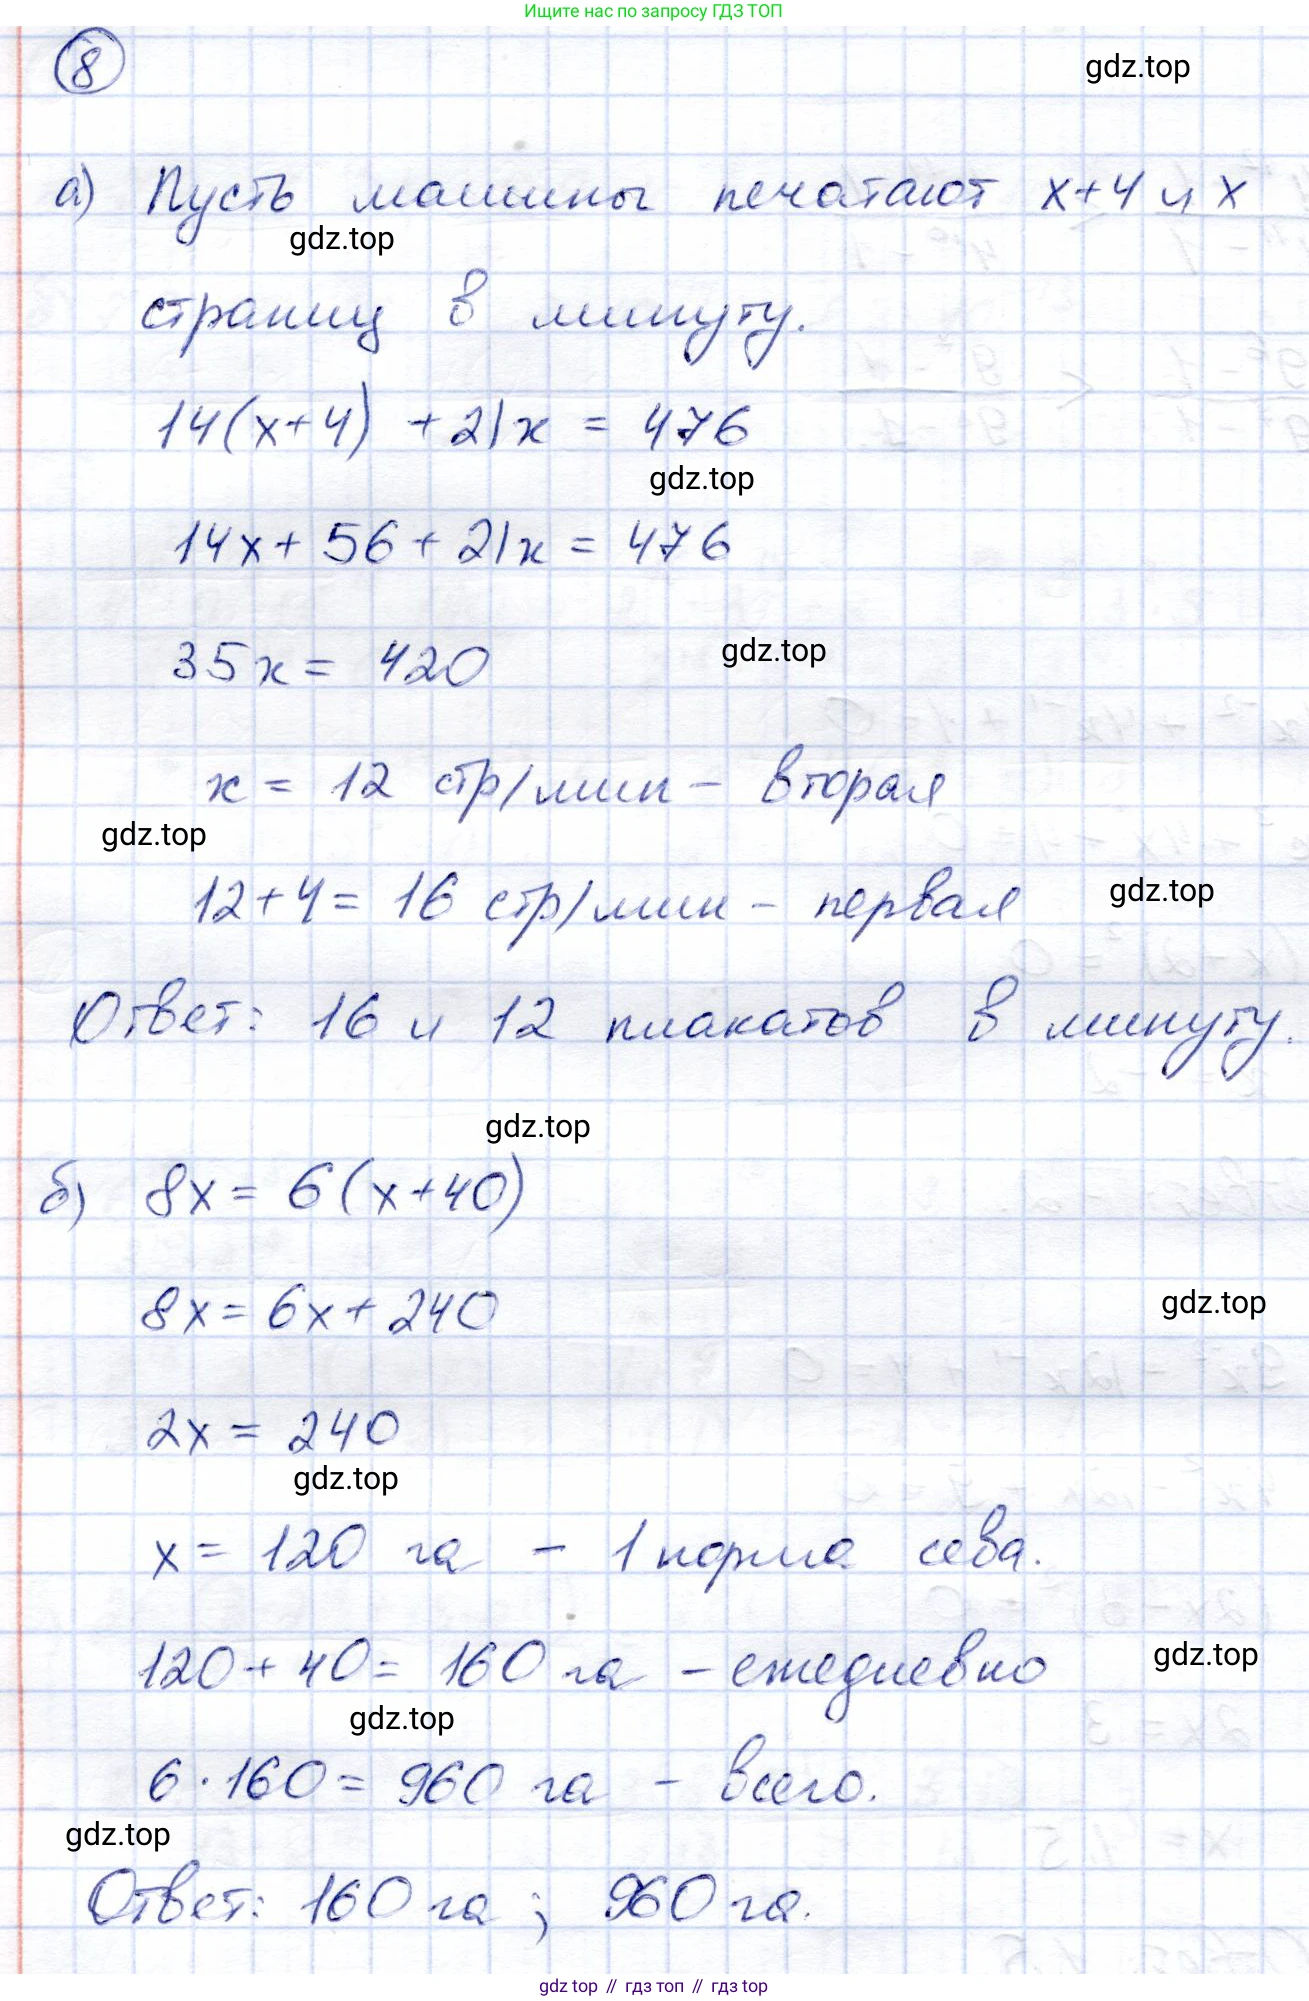 Ищите нас по запросу ГДЗ ТОП
8
gdz.top
а) Пусть машины печатают x+4 и x
gdz.top
страниц в минуту.
14(x+4) + 21x = 476
gdz.top
14x + 56 + 21x = 476
35x = 420
gdz.top
x = 12 стр/мин - вторая
gdz.top
12+4 = 16 стр/мин - первая
gdz.top
Ответ: 16 и 12 плакатов в минуту.
gdz.top
б) 8x = 6(x+40)
8x = 6x + 240
gdz.top
2x = 240
gdz.top
x = 120 га - 1 норма сева.
120 + 40 = 160 га - ежедневно
gdz.top
gdz.top
6 · 160 = 960 га - всего.
gdz.top
Ответ: 160 га ; 960 га.
gdz top // гдз топ // гдз top